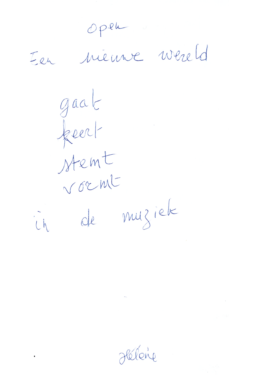 open
Een nieuwe wereld
gaat
keert
stemt
vormt
in de muziek
Hélène